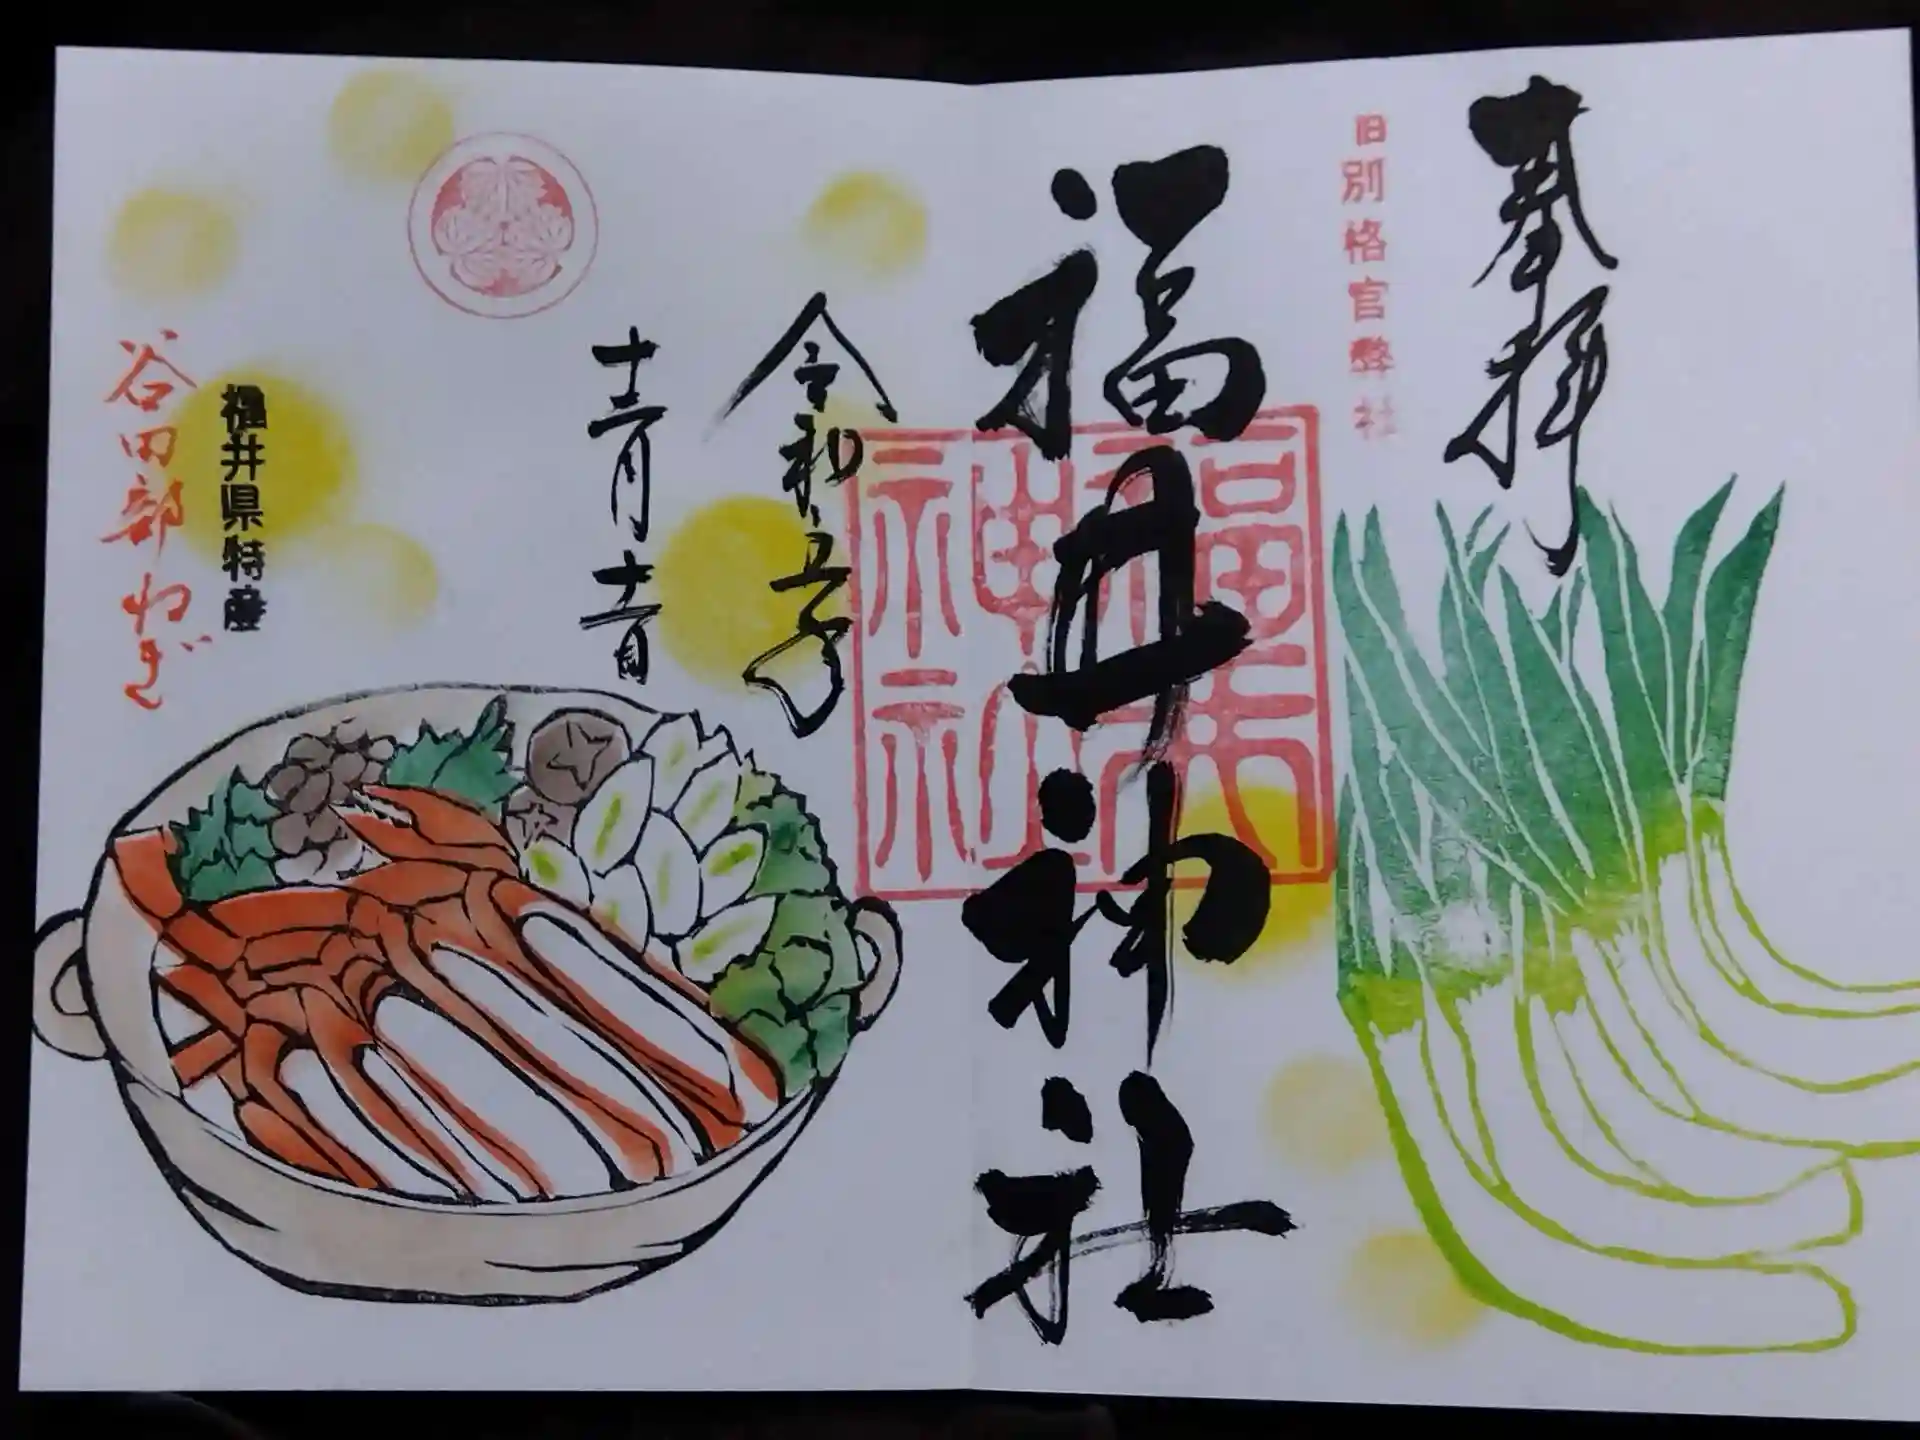 奉拝
旧別格官幣社
福井神社
福井神社
令和五年
十二月十一日
福井県特産
谷田部ねぎ